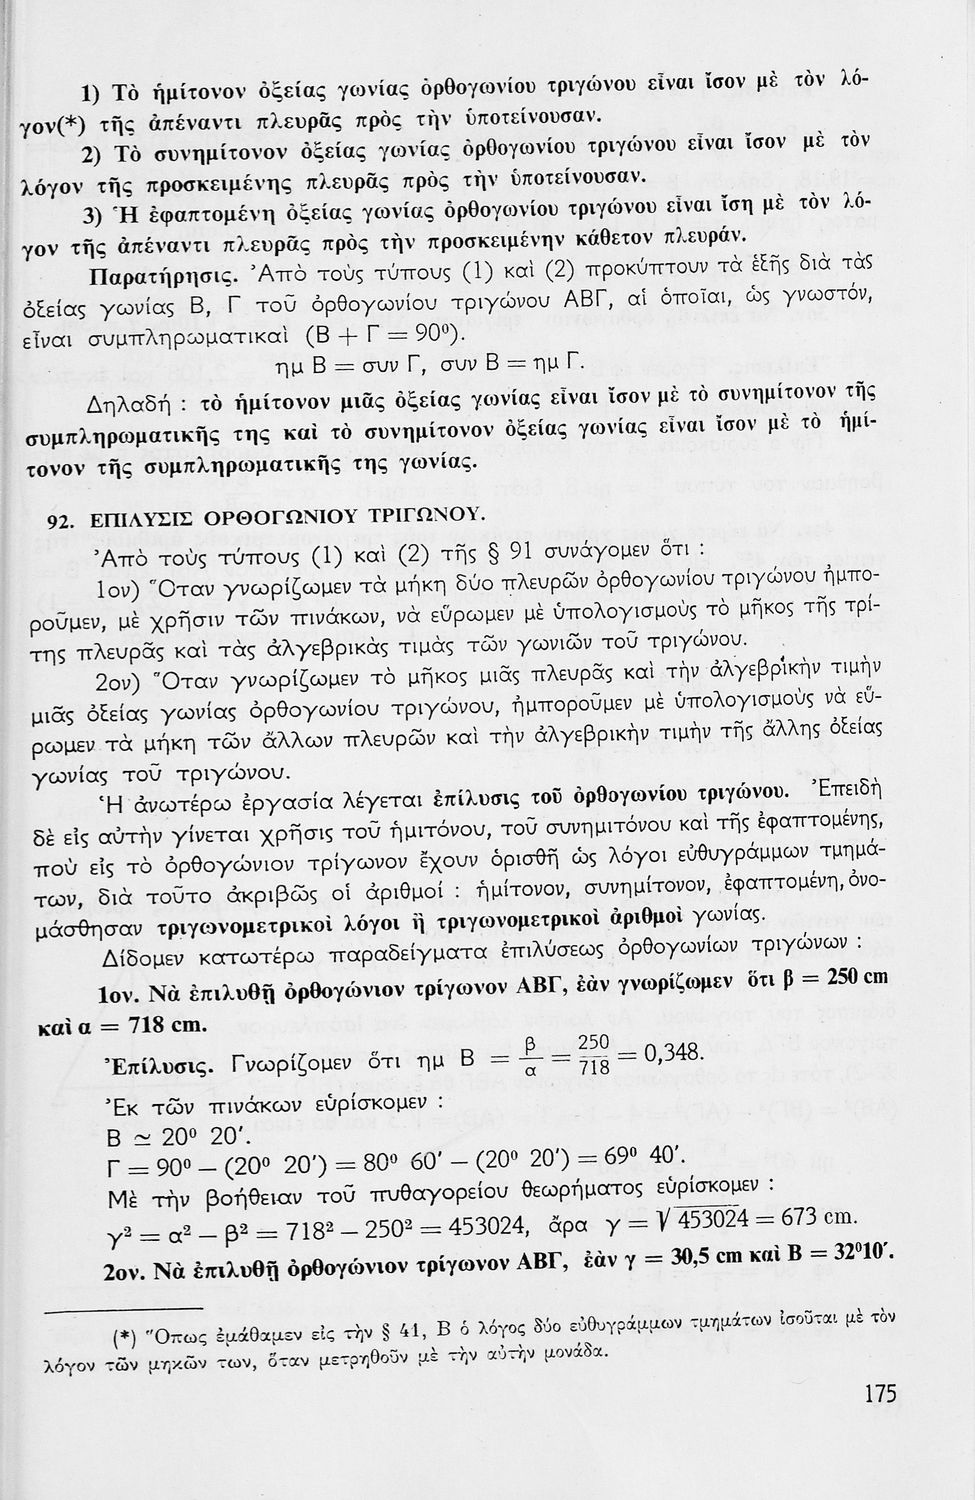 1) Τὸ ἡμίτονον ὀξείας γωνίας ὀρθογωνίου τριγώνου εἶναι ἴσον μὲ τὸν λό-
γον(*) τῆς ἀπέναντι πλευρᾶς πρὸς τὴν ὑποτείνουσαν.
2) Τὸ συνημίτονον ὀξείας γωνίας ὀρθογωνίου τριγώνου εἶναι ἴσον μὲ τὸν
λόγον τῆς προσκειμένης πλευρᾶς πρὸς τὴν ὑποτείνουσαν.
3) Ἡ ἐφαπτομένη ὀξείας γωνίας ὀρθογωνίου τριγώνου εἶναι ἴση μὲ τὸν λό-
γον τῆς ἀπέναντι πλευρᾶς πρὸς τὴν προσκειμένην κάθετον πλευράν.
Παρατήρησις. Ἀπὸ τοὺς τύπους (1) καὶ (2) προκύπτουν τὰ ἑξῆς διὰ τὰς
ὀξείας γωνίας Β, Γ τοῦ ὀρθογωνίου τριγώνου ΑΒΓ, αἱ ὁποῖαι, ὡς γνωστόν,
εἶναι συμπληρωματικαὶ (Β + Γ = 90⁰).
ημ Β = συν Γ, συν Β = ημ Γ.
Δηλαδή : τὸ ἡμίτονον μιᾶς ὀξείας γωνίας εἶναι ἴσον μὲ τὸ συνημίτονον τῆς
συμπληρωματικῆς της καὶ τὸ συνημίτονον ὀξείας γωνίας εἶναι ἴσον μὲ τὸ ἡμί-
τονον τῆς συμπληρωματικῆς της γωνίας.
92. ΕΠΙΛΥΣΙΣ ΟΡΘΟΓΩΝΙΟΥ ΤΡΙΓΩΝΟΥ.
Ἀπὸ τοὺς τύπους (1) καὶ (2) τῆς § 91 συνάγομεν ὅτι :
1ον) Ὅταν γνωρίζωμεν τὰ μήκη δύο πλευρῶν ὀρθογωνίου τριγώνου ἠμπο-
ροῦμεν, μὲ χρῆσιν τῶν πινάκων, νὰ εὕρωμεν μὲ ὑπολογισμοὺς τὸ μῆκος τῆς τρί-
της πλευρᾶς καὶ τὰς ἀλγεβρικὰς τιμὰς τῶν γωνιῶν τοῦ τριγώνου.
2ον) Ὅταν γνωρίζωμεν τὸ μῆκος μιᾶς πλευρᾶς καὶ τὴν ἀλγεβρικὴν τιμὴν
μιᾶς ὀξείας γωνίας ὀρθογωνίου τριγώνου, ἠμποροῦμεν μὲ ὑπολογισμοὺς νὰ εὕ-
ρωμεν τὰ μήκη τῶν ἄλλων πλευρῶν καὶ τὴν ἀλγεβρικὴν τιμὴν τῆς ἄλλης ὀξείας
γωνίας τοῦ τριγώνου.
Ἡ ἀνωτέρω ἐργασία λέγεται ἐπίλυσις τοῦ ὀρθογωνίου τριγώνου. Ἐπειδὴ
δὲ εἰς αὐτὴν γίνεται χρῆσις τοῦ ἡμιτόνου, τοῦ συνημιτόνου καὶ τῆς ἐφαπτομένης,
ποὺ εἰς τὸ ὀρθογώνιον τρίγωνον ἔχουν ὁρισθῆ ὡς λόγοι εὐθυγράμμων τμημά-
των, διὰ τοῦτο ἀκριβῶς οἱ ἀριθμοί : ἡμίτονον, συνημίτονον, ἐφαπτομένη, ὀνο-
μάσθησαν τριγωνομετρικοὶ λόγοι ἢ τριγωνομετρικοὶ ἀριθμοὶ γωνίας.
Δίδομεν κατωτέρω παραδείγματα ἐπιλύσεως ὀρθογωνίων τριγώνων :
1ον. Νὰ ἐπιλυθῇ ὀρθογώνιον τρίγωνον ΑΒΓ, ἐὰν γνωρίζωμεν ὅτι β = 250 cm
καὶ α = 718 cm.
Ἐπίλυσις. Γνωρίζομεν ὅτι ημ Β = β/α = 250/718 = 0,348.
Ἐκ τῶν πινάκων εὑρίσκομεν :
Β ≃ 20⁰ 20′.
Γ = 90⁰ – (20⁰ 20′) = 80⁰ 60′ – (20⁰ 20′) = 69⁰ 40′.
Μὲ τὴν βοήθειαν τοῦ πυθαγορείου θεωρήματος εὑρίσκομεν :
γ² = α² – β² = 718² – 250² = 453024, ἄρα γ = √453024 = 673 cm.
2ον. Νὰ ἐπιλυθῇ ὀρθογώνιον τρίγωνον ΑΒΓ, ἐὰν γ = 30,5 cm καὶ Β = 32⁰10′.
(*) Ὅπως ἐμάθαμεν εἰς τὴν § 41, Β ὁ λόγος δύο εὐθυγράμμων τμημάτων ἰσοῦται μὲ τὸν
λόγον τῶν μηκῶν των, ὅταν μετρηθοῦν μὲ τὴν αὐτὴν μονάδα.
175